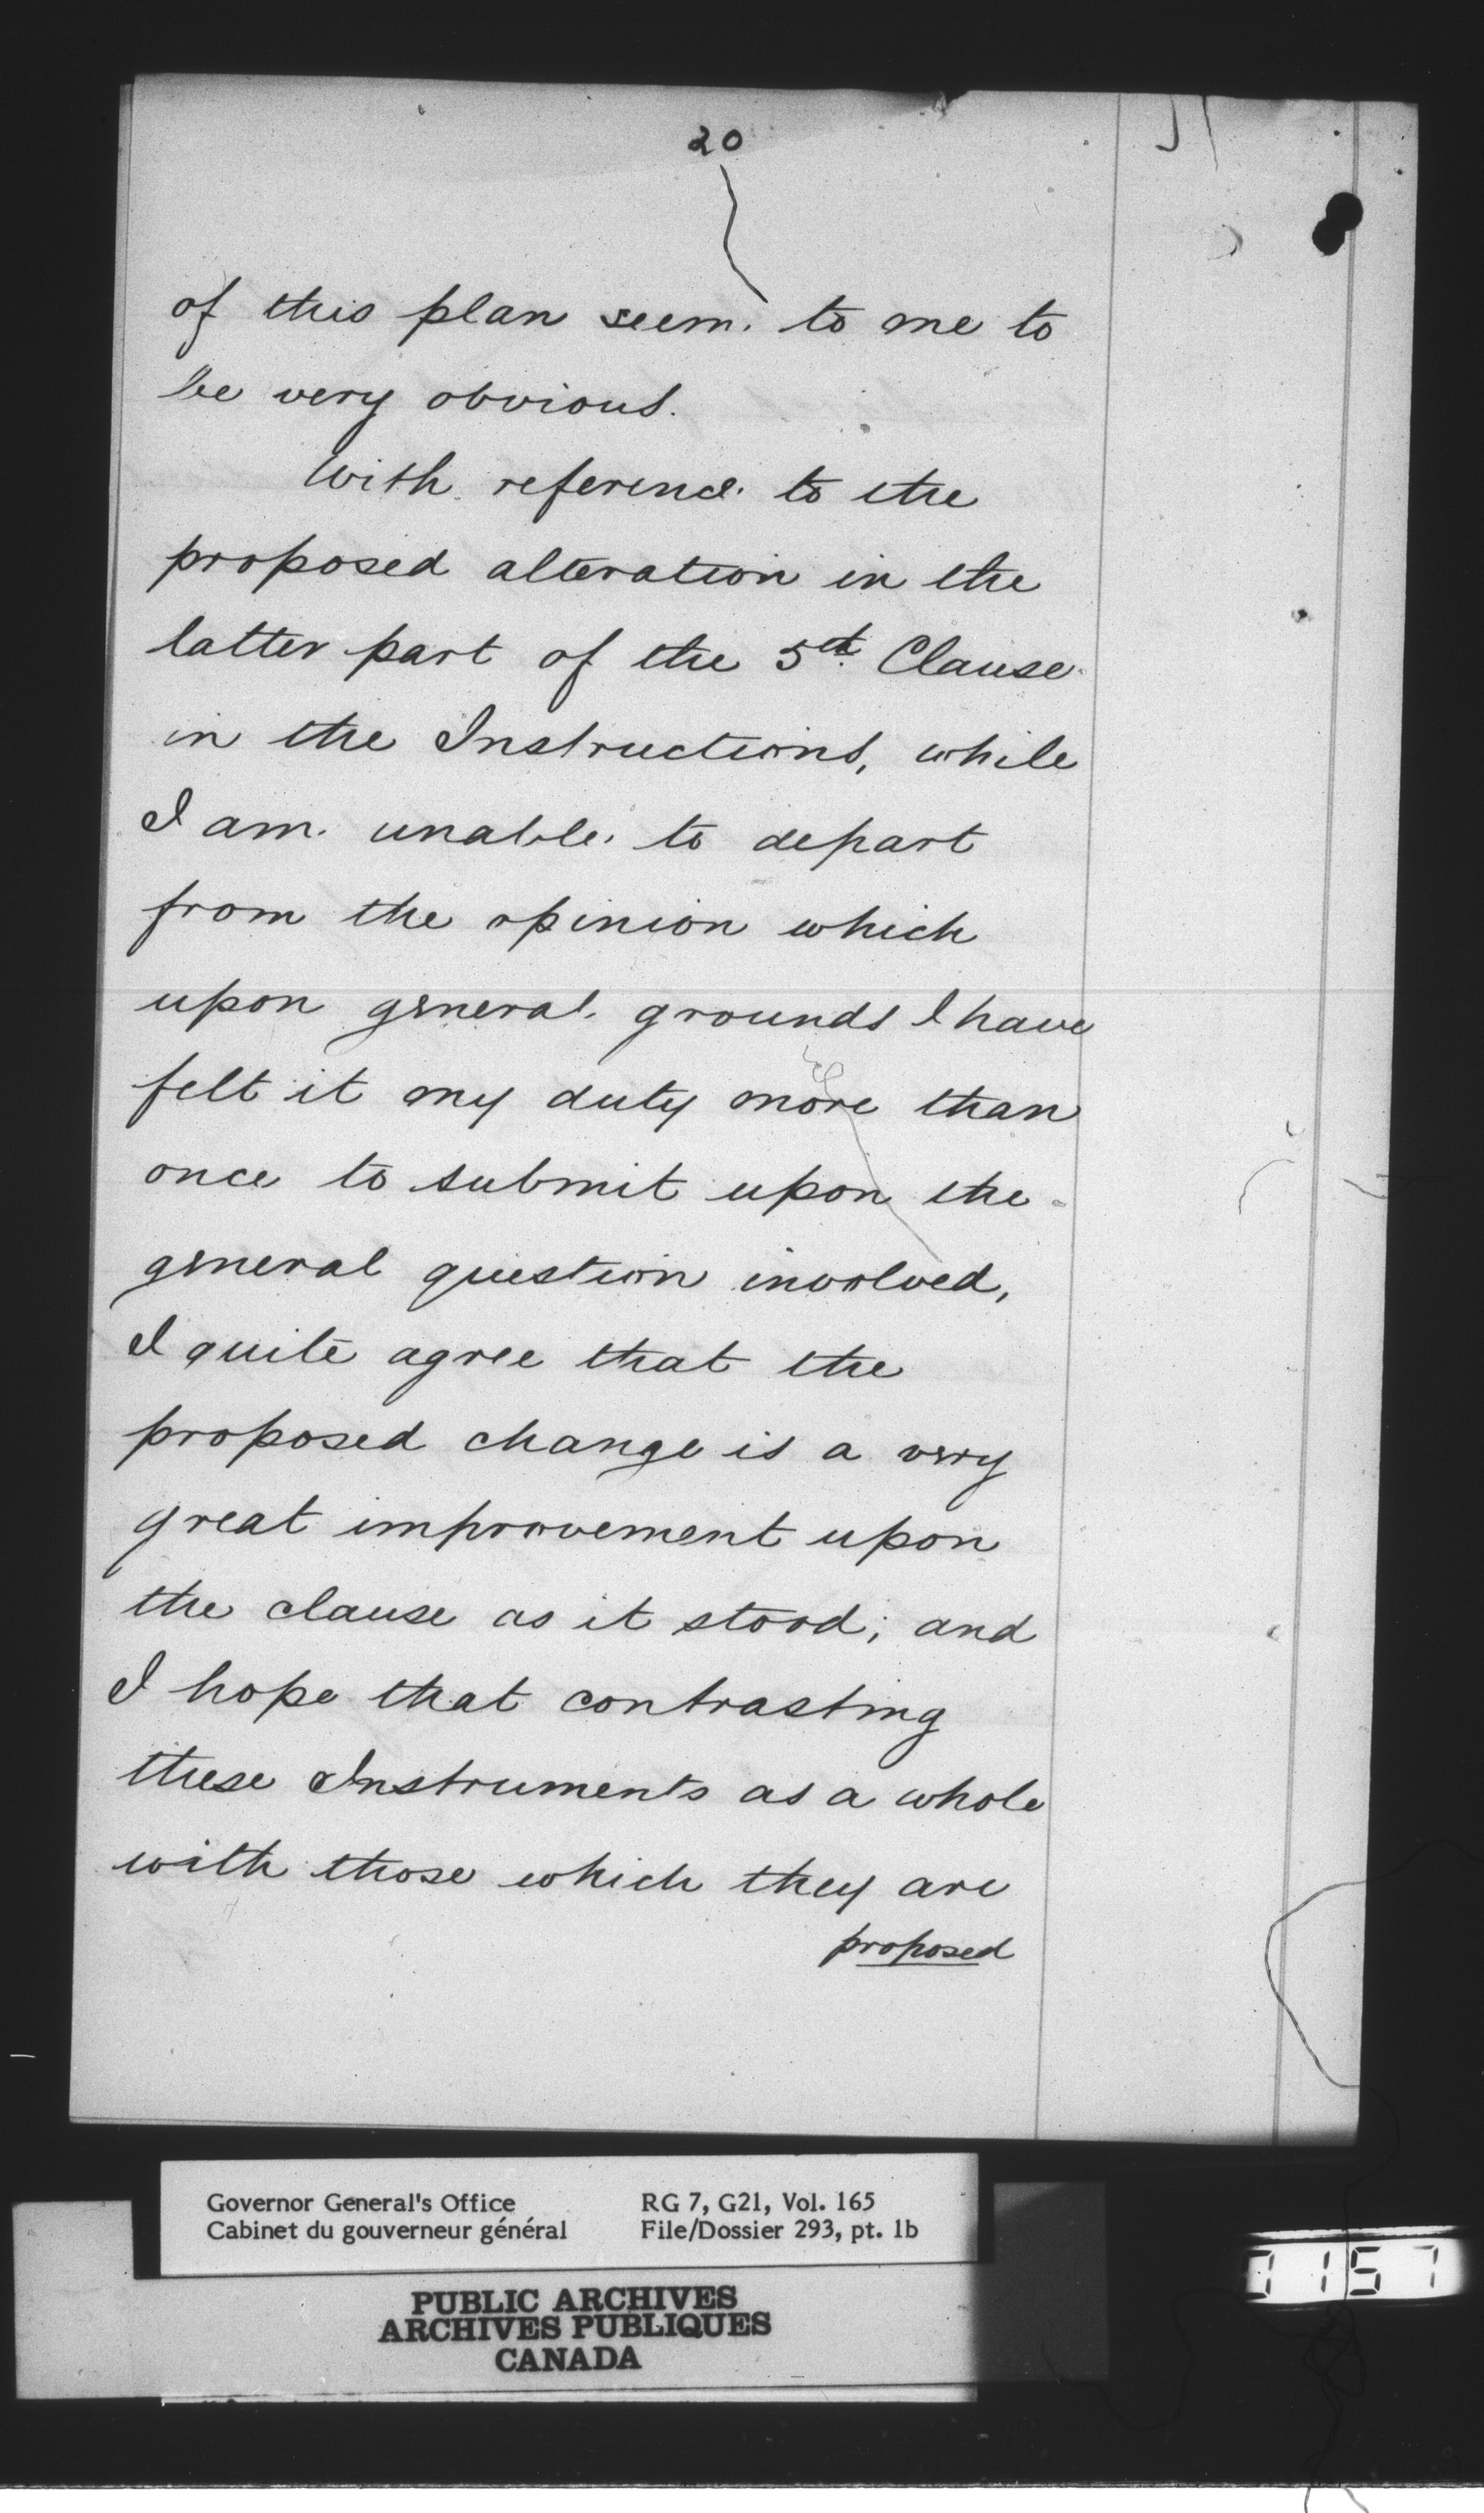 20
of this plan seem to me to
be very obvious.
With reference to the
proposed alteration in the
latter part of the 5th Clause
in the Instructions, while
I am unable to depart
from the opinion which
upon general grounds I have
felt it my duty more than
once to submit upon the
general question involved,
I quite agree that the
proposed change is a very
great improvement upon
the clause as it stood; and
I hope that contrasting
these Instruments as a whole
with those which they are
proposed
Governor General's Office RG 7, G21, Vol. 165
Cabinet du gouverneur général File/Dossier 293, pt. 1b
PUBLIC ARCHIVES
ARCHIVES PUBLIQUES
CANADA